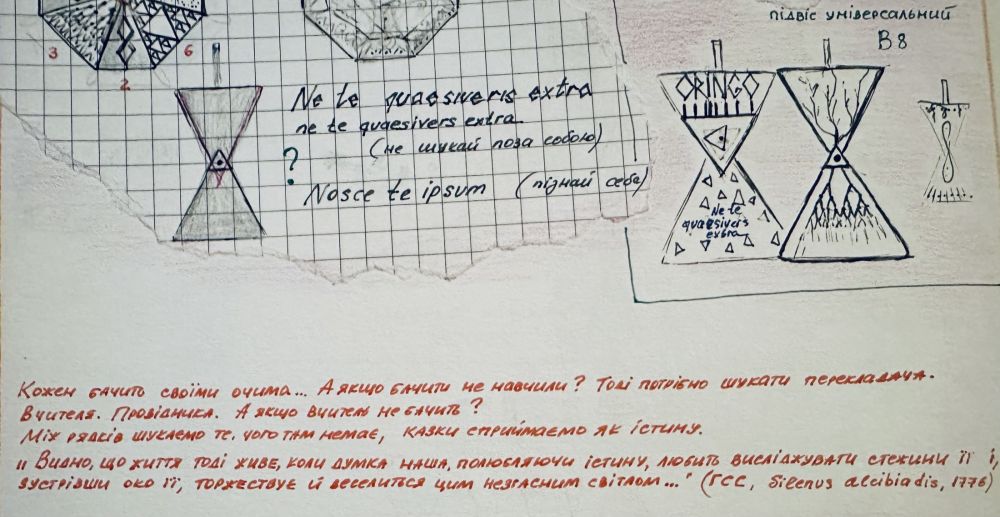 3
2
6
Ne te quaesiveris extra
ne te quaesivers extra
(не шукай поза собою)
?
Nosce te ipsum (пізнай себе)
підвіс універсальний
В 8
ORINGO
Ne te
quaesivers
extra
Кожен бачить своїми очима... А якщо бачити не навчили? Тоді потрібно шукати перекладача.
Вчителя. Провідника. А якщо вчитель не бачить?
Між рядків шукаємо те, чого там немає, казки сприймаємо як істину.
„Видно, що життя тоді живе, коли думка наша, полюбляючи істину, любить висліджувати стежини її і,
зустрівши око її, торжествує й веселиться цим незгасним світлом..." (ГСС, Silenus alcibiadis, 1776)